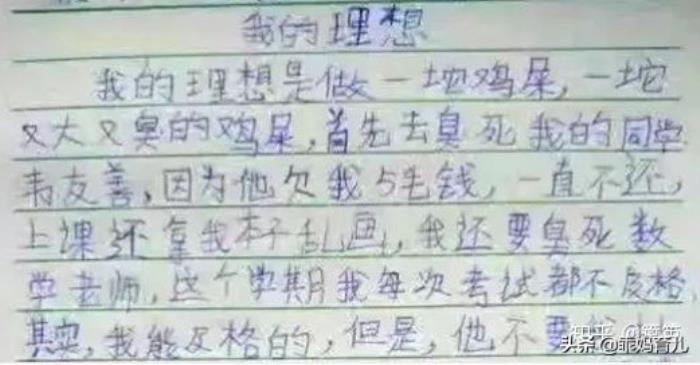 我的理想
我的理想是做一坨鸡屎,一坨
又大又臭的鸡屎,首先去臭死我的同学
韦友善,因为他欠我5毛钱,一直不还,
上课还拿我本子乱画,我还要臭死数
学老师,这个学期我每次考试都不及格,
其实,我能及格的,但是,他不要
知乎
头条 @菲妈育儿